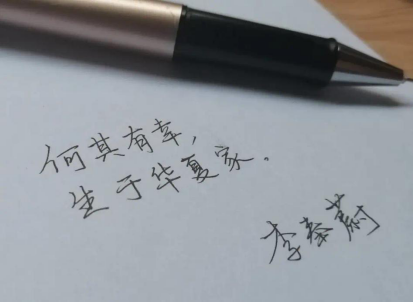 何其有幸，
生于华夏家。
李秦蔚